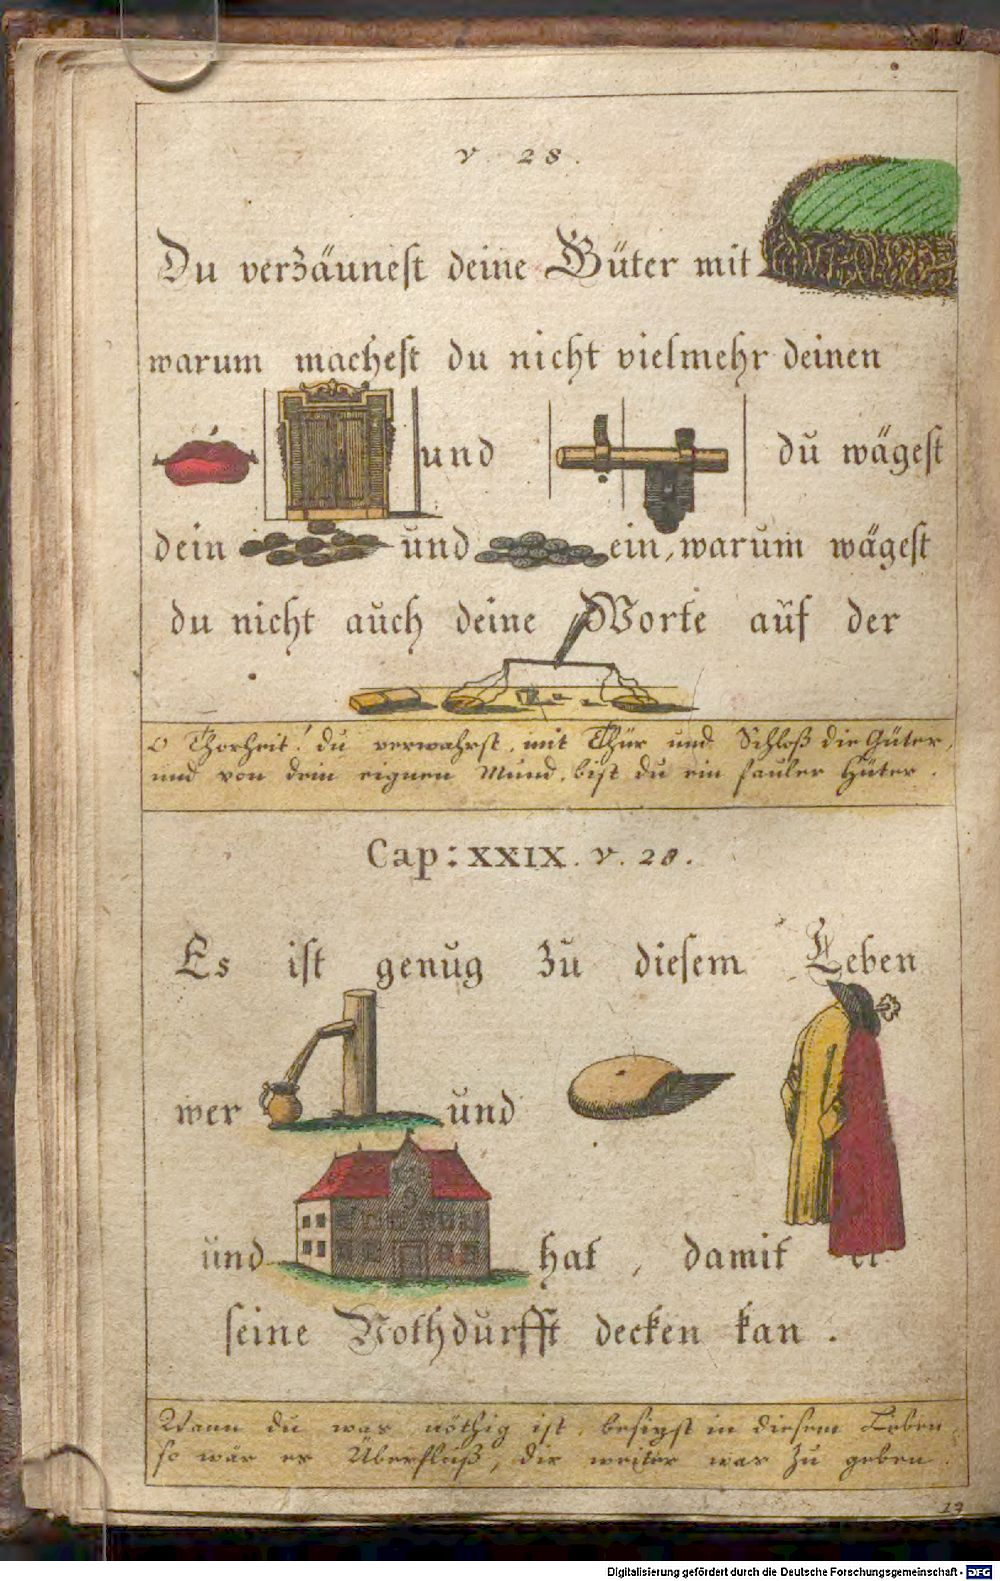 v. 28.
Du verzäunest deine Güter mit
warum machest du nicht vielmehr deinen
und du wägest
dein und ein, warum wägest
du nicht auch deine Worte auf der
O Thorheit! du verwahrst, mit Thür und Schloß die Güter,
und von dem eignen Mund, bist du ein fauler Hüter.
Cap: XXIX. v. 28.
Es ist genug zu diesem Leben
wer und
und hat, damit er
seine Nothdurfft decken kan.
Wann du was nöthig ist, besitzst in diesem Leben
so wär es Überfluß, dir weiter was zu geben.
Digitalisierung gefördert durch die Deutsche Forschungsgemeinschaft - DFG